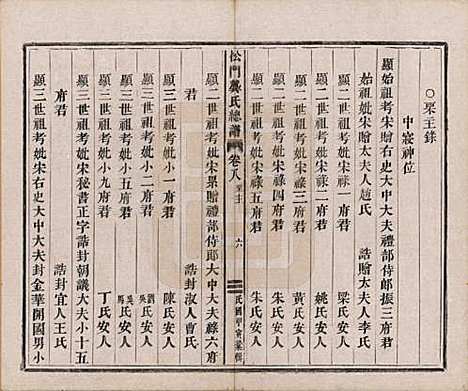 ○栗主錄
中寢神位
顯始祖考宋贈右史大中大夫禮部侍郎振三府君
始祖妣宋贈太夫人趙氏 誥贈太夫人李氏
顯二世祖考妣宋祿二府君 梁氏安人
顯二世祖考妣宋祿三府君 姚氏安人
顯二世祖考妣宋祿四府君 黃氏安人
顯二世祖考妣宋祿五府君 朱氏安人
朱氏安人
松門龔氏總譜 卷八 栗主 六 民國甲寅彙輯
顯二世祖考妣宋累贈禮部侍郎大中大夫祿六府
君 誥封淑人曹氏
顯三世祖考妣小一府君 陳氏安人
顯三世祖考妣小二府君 劉吳氏安人
顯三世祖考妣小五府君 吳馬氏安人
顯三世祖考妣宋秘書正字誥封朝議大夫小十五
丁氏安人
府君 誥封宜人王氏
顯三世祖考妣宋右史大中大夫封金華開國男小